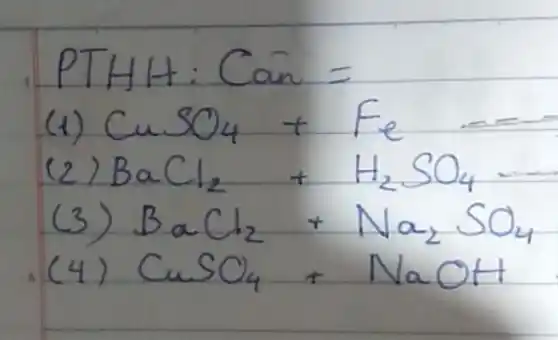 PTHH: Cân =
(1) CuSO4 + Fe ---
(2) BaCl2 + H2SO4 ---
(3) BaCl2 + Na2SO4
(4) CuSO4 + NaOH